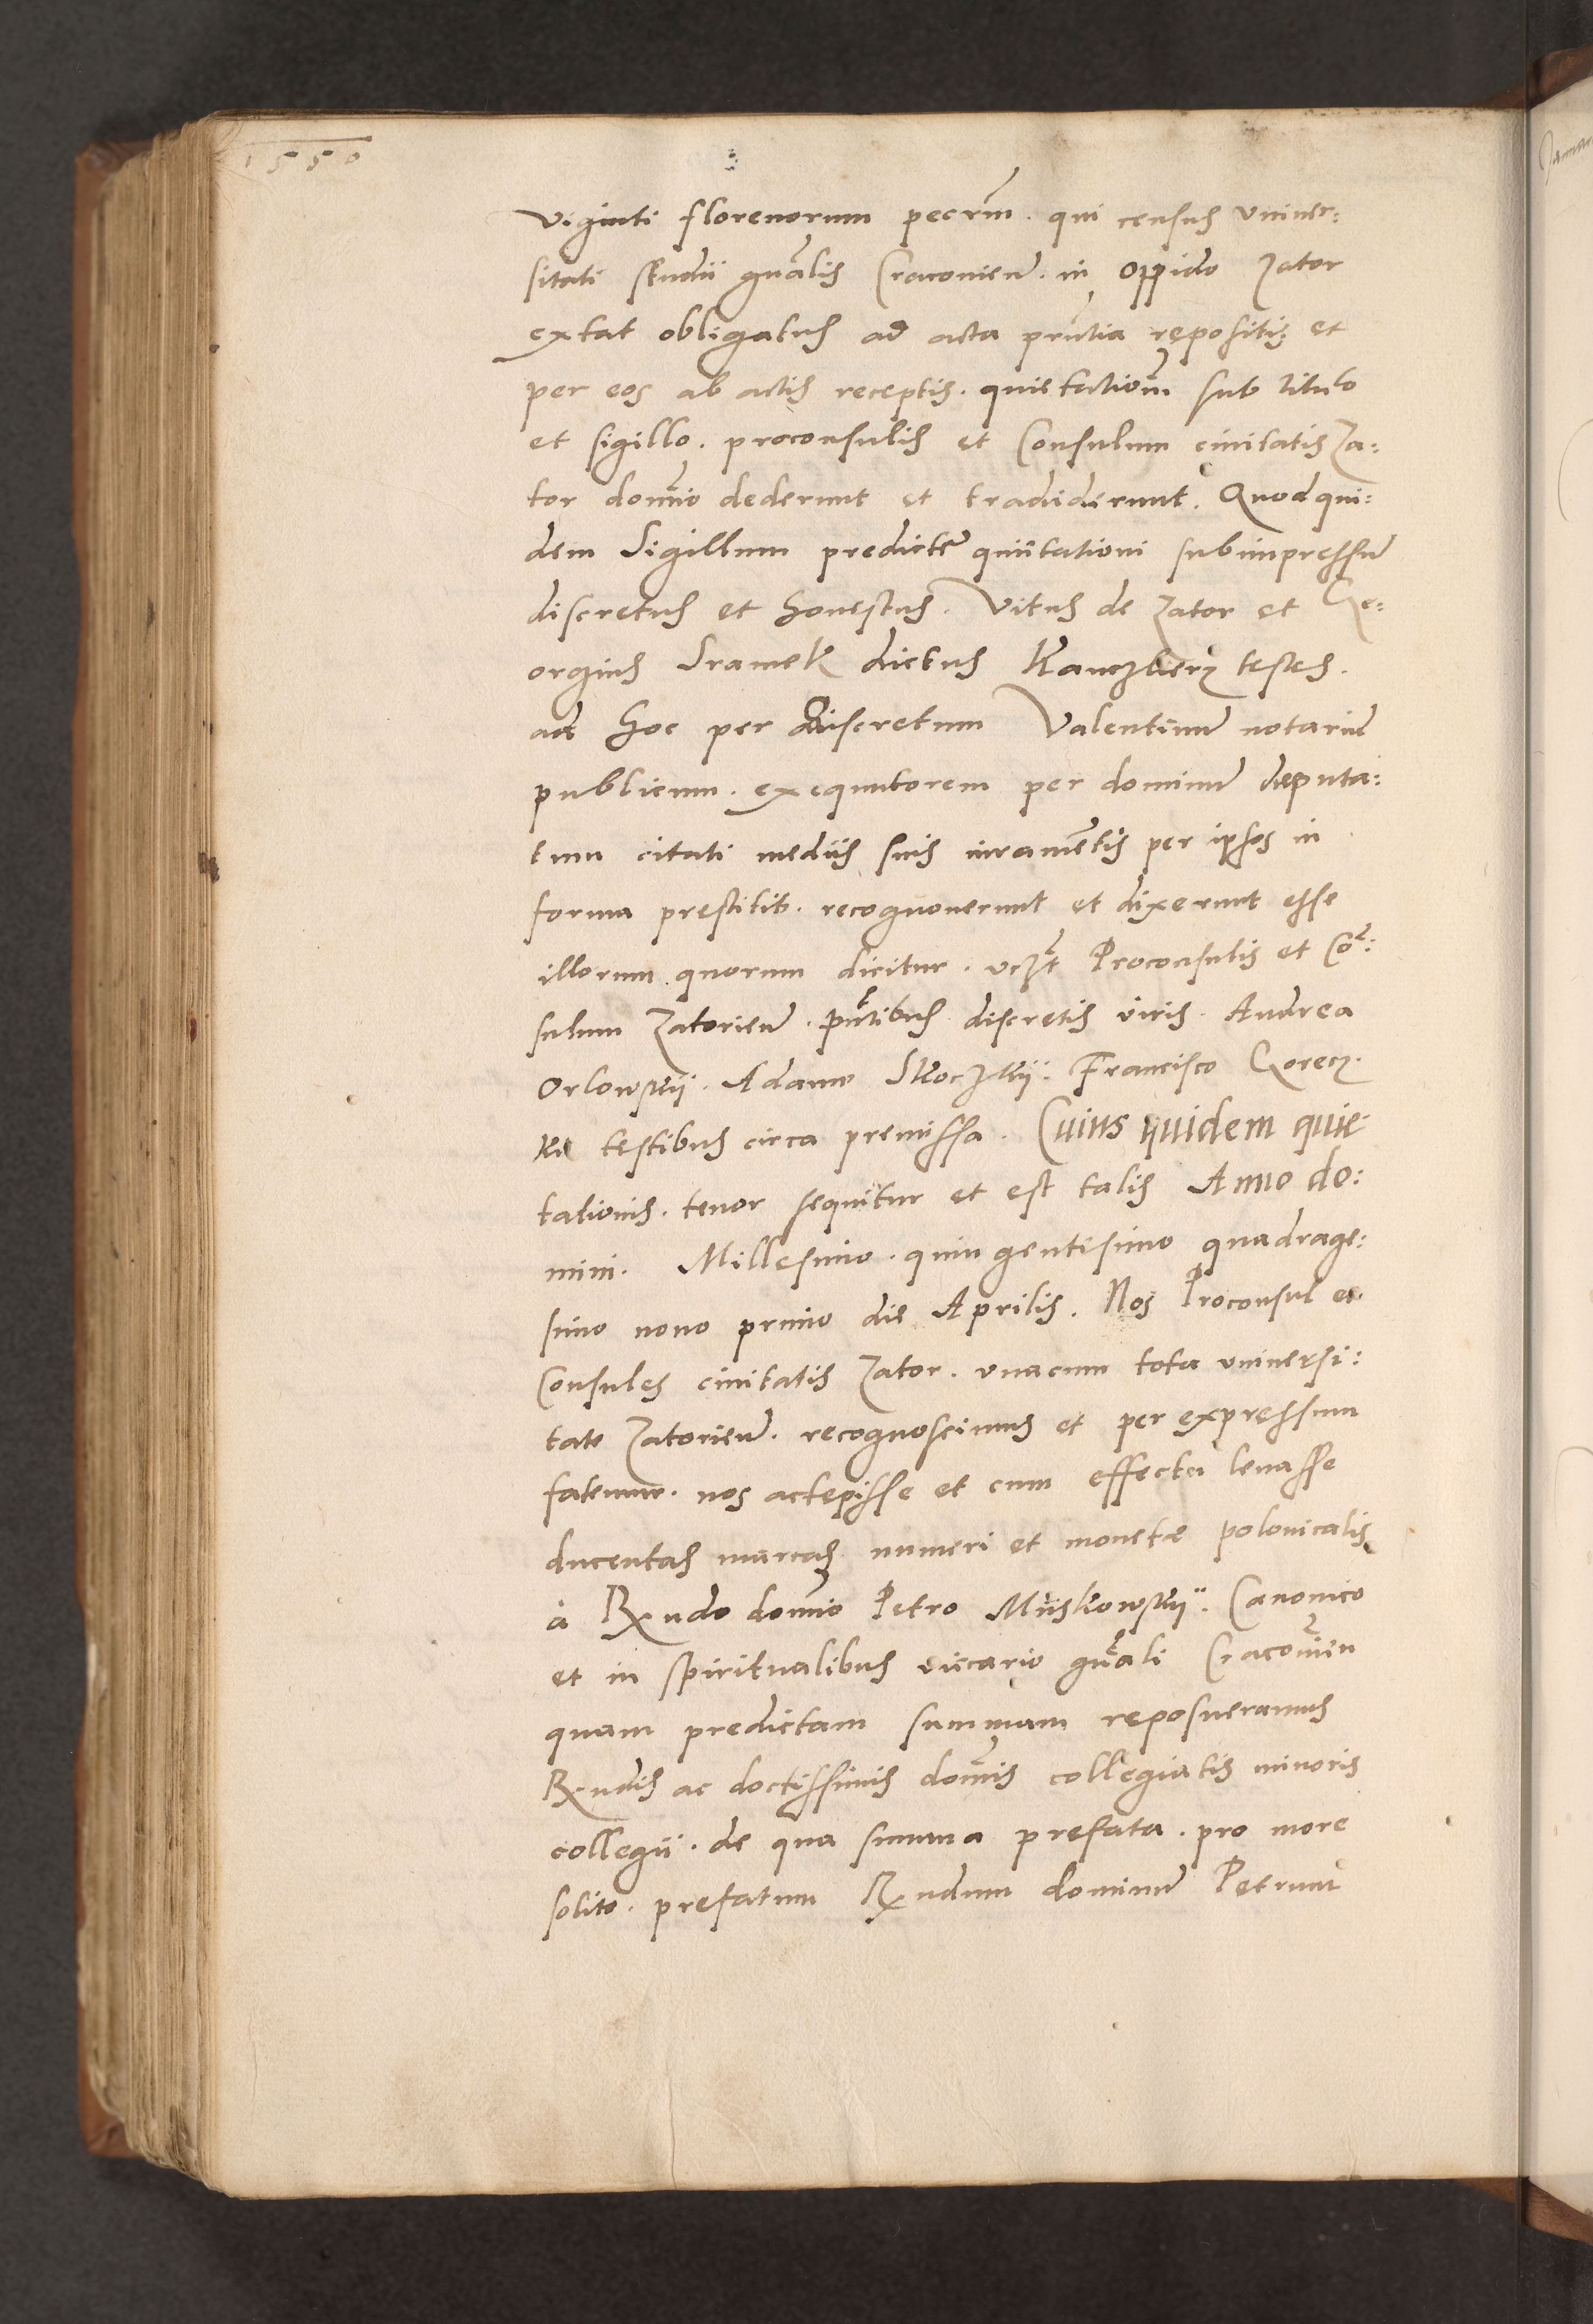 1550
viginti florenorum pecrm̃. qui census univer:
sitati studii gn̄alis Cracovien̄. in oppido Zator
extat obligatus ad acta prn̄tia repositis et
per eos ab actis receptis. quietation̄m sub titulo
et sigillo. proconsulis et Consulum civitatis Za:
tor domīo dederunt et tradiderunt. Quod qui:
dem Sigillum predictę quittationi subimpressū
discretus et honestus. Vitus de Zator et Ge:
orgius Sramek dictus Kanczlierz testes.
ad hoc per discretum Valentinū notariū
publicum. exequutorem per dominū deputa:
tum citati mediis suis iuramētis per ipsos in
forma prestitis. recognoverunt et dixerunt esse
illorum quorum dicitur. vczt̄ Proconsulis et Cō:
sulum Zatorien̄. pn̄tibus discretis viris. Andrea
Orlowskÿ. Adamo Skoczkÿ. Francisco Gorecz
ki testibus circa premissa. Cuius quidem quie
tationis. tenor sequitur et est talis Anno do:
mini. Millesimo. quingentisimo quadrage:
simo nono primo die Aprilis. Nos Proconsul et
Consules civitatis Zator. unacum tota universi:
tate Zatorien̄. recognoscimus et per expressum
fatemur. nos accepisse et cum effectu levasse
ducentas marcas numeri et monetæ polonicalis
à Rx̄ndo domīo Petro Miiskowskÿ. Canonico
et in spiritualibus vicario gn̄ali Cracovien̄
quam predictam summam reposueramus
Rx̄ndis ac doctissimis domīs collegiatis minoris
collegii. de qua summa prefata. pro more
solito. prefatum Rx̄ndum dominū Petrum